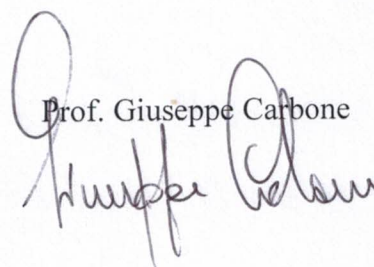 Prof. Giuseppe Carbone
Giuseppe Carbone